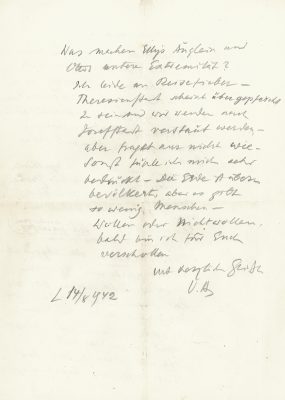 Was machen Ellys Äuglein und
Omas untere Extremität?
Ich leide an Reisefieber –
Theresienstadt scheint übergepfropft
zu sein und wir werden nach
Josefstadt verstaut werden –
aber fragt uns nicht wie –
Sonst fühle ich mich sehr
bedrückt – Die Erde ist
bevölkert, aber es gibt
so wenig Menschen –
Wollen oder Nichtwollen,
bald bin ich für Euch
verschollen
mit herzlichen
L 14/8 1942